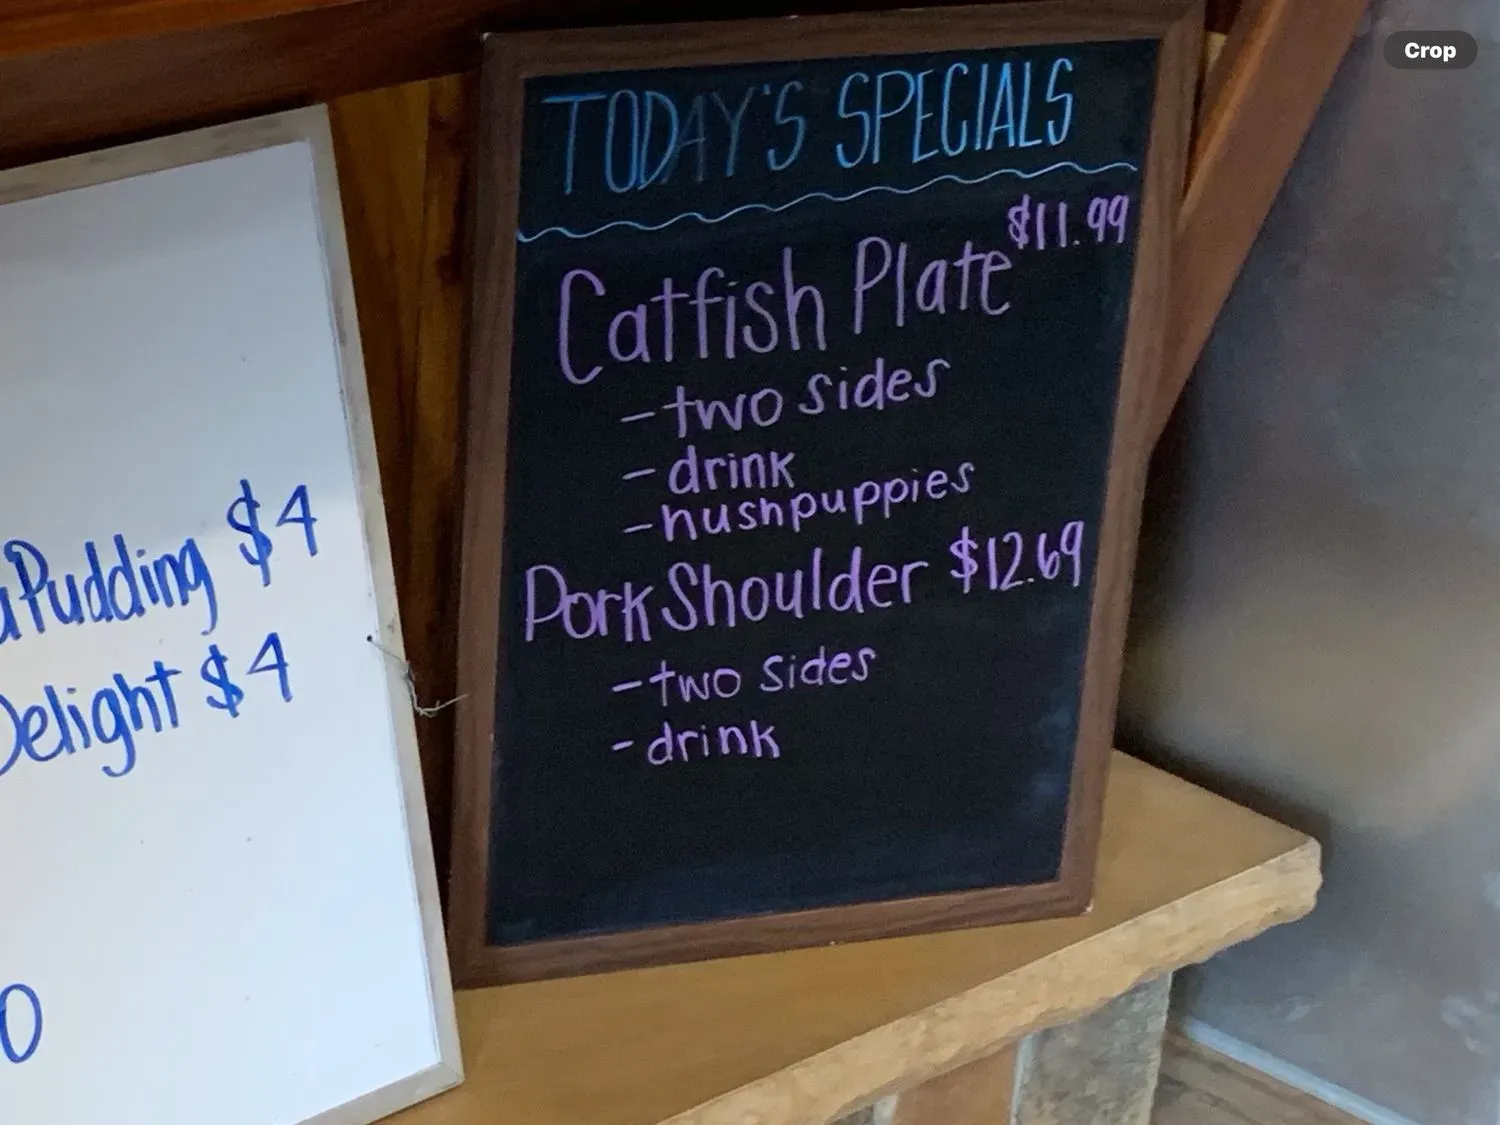 Pudding $4
Delight $4
TODAY'S SPECIALS
Catfish Plate $11.99
- two sides
- drink
- hushpuppies
Pork Shoulder $12.69
- two sides
- drink
Crop